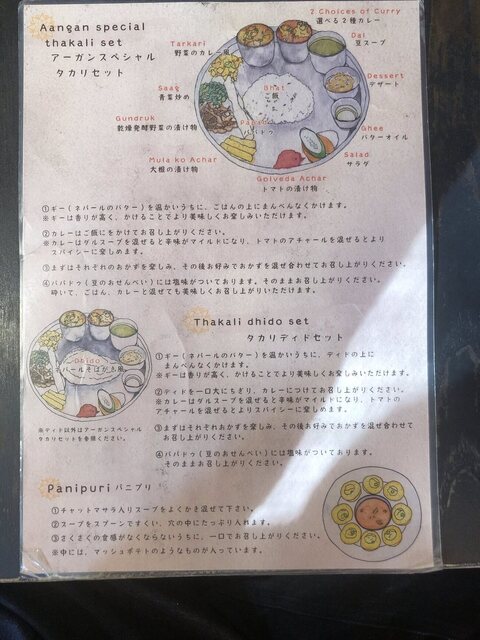 Aangan special
thakali set
アーガンスペシャル
タカリセット
2 Choices of Curry
選べる2種カレー
Tarkari
野菜のカレー風
Dal
豆スープ
Saag
青菜炒め
Bhat
ご飯
Dessert
デザート
Gundruk
乾燥発酵野菜の漬け物
Papad
パパドゥ
Ghee
バターオイル
Mula ko Achar
大根の漬け物
Salad
サラダ
Golveda Achar
トマトの漬け物
①ギー(ネパールのバター)を温かいうちに、ごはんの上にまんべんなくかけます。
※ギーは香りが高く、かけることでより美味しくお楽しみいただけます。
②カレーはご飯にをかけてお召し上がりください。
※カレーはダルスープを混ぜると辛味がマイルドになり、トマトのアチャールを混ぜるとより
スパイシーに楽しめます。
③まずはそれぞれのおかずを楽しみ、その後お好みでおかずを混ぜ合わせてお召し上がりください。
④パパドゥ(豆のおせんべい)には塩味がついております。そのままお召し上がりください。
砕いて、ごはん、カレーと混ぜても美味しくお召し上がりいただけます。
Thakali dhido set
タカリディドセット
Dhido
ネパールそばがき風
※ディド以外はアーガンスペシャル
タカリセットを参照ください。
①ギー(ネパールのバター)を温かいうちに、ディドの上に
まんべんなくかけます。
※ギーは香りが高く、かけることでより美味しくお楽しみいただけます。
②ディドを一口大にちぎり、カレーにつけてお召し上がりください。
※カレーはダルスープを混ぜると辛味がマイルドになり、トマトの
アチャールを混ぜるとよりスパイシーに楽しめます。
③まずはそれぞれおかずを楽しみ、その後お好みでおかずを混ぜ合わせて
お召し上がりください。
④パパドゥ(豆のおせんべい)には塩味がついております。
そのままお召し上がりください。
Panipuri パニプリ
①チャットマサラ入りスープをよくかき混ぜて下さい。
②スープをスプーンですくい、穴の中にたっぷり入れます。
③さくさくの食感がなくならないうちに、一口でお召し上がりください。
※中には、マッシュポテトのようなものが入っています。